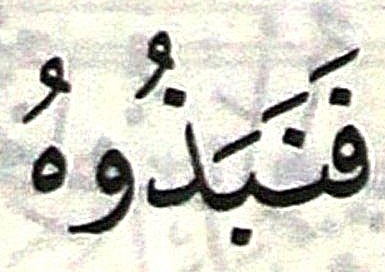 فَنَبَذُوهُ